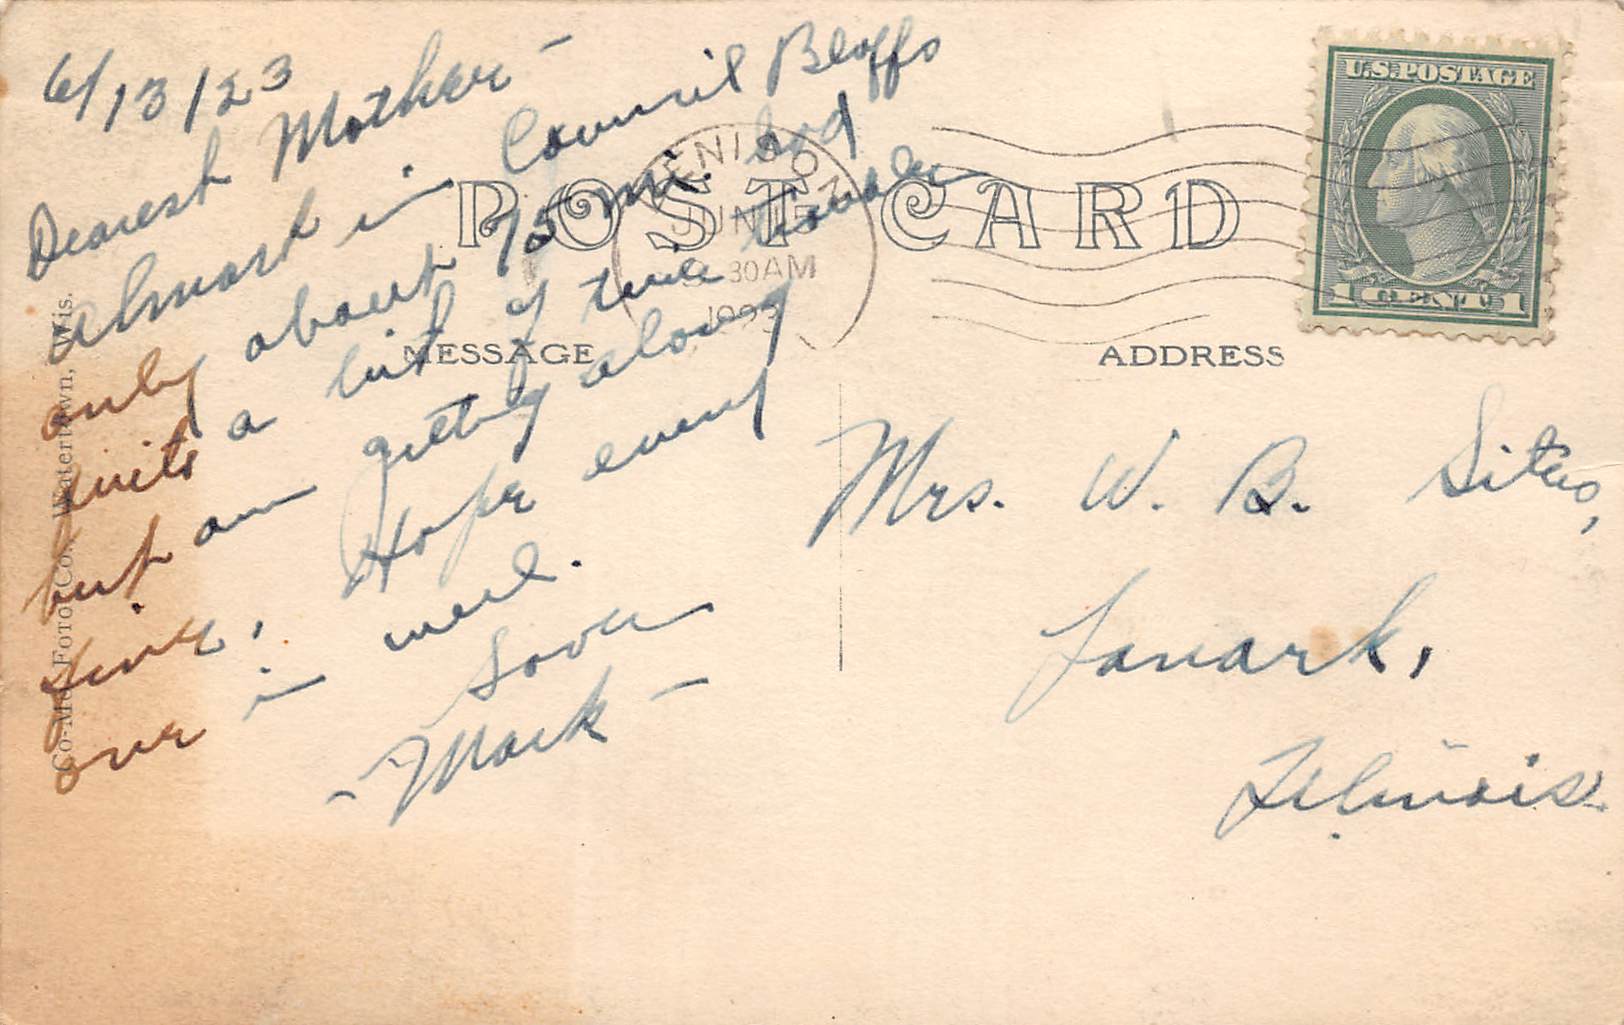 6/13/23
Dearest Mother -
Almost in Council Bluffs
only about 75 mi. had
quite a bit of tire trouble
but am getting along
fine. Hope every
one is well.
Love
- Mark -
POST CARD
MESSAGE
ADDRESS
Co-Mo Foto Co., Watertown, Wis.
DENISON
JUN
30 AM
1923
U.S. POSTAGE
1 CENT 1
Mrs. W. B. Sites,
Lanark,
Illinois.